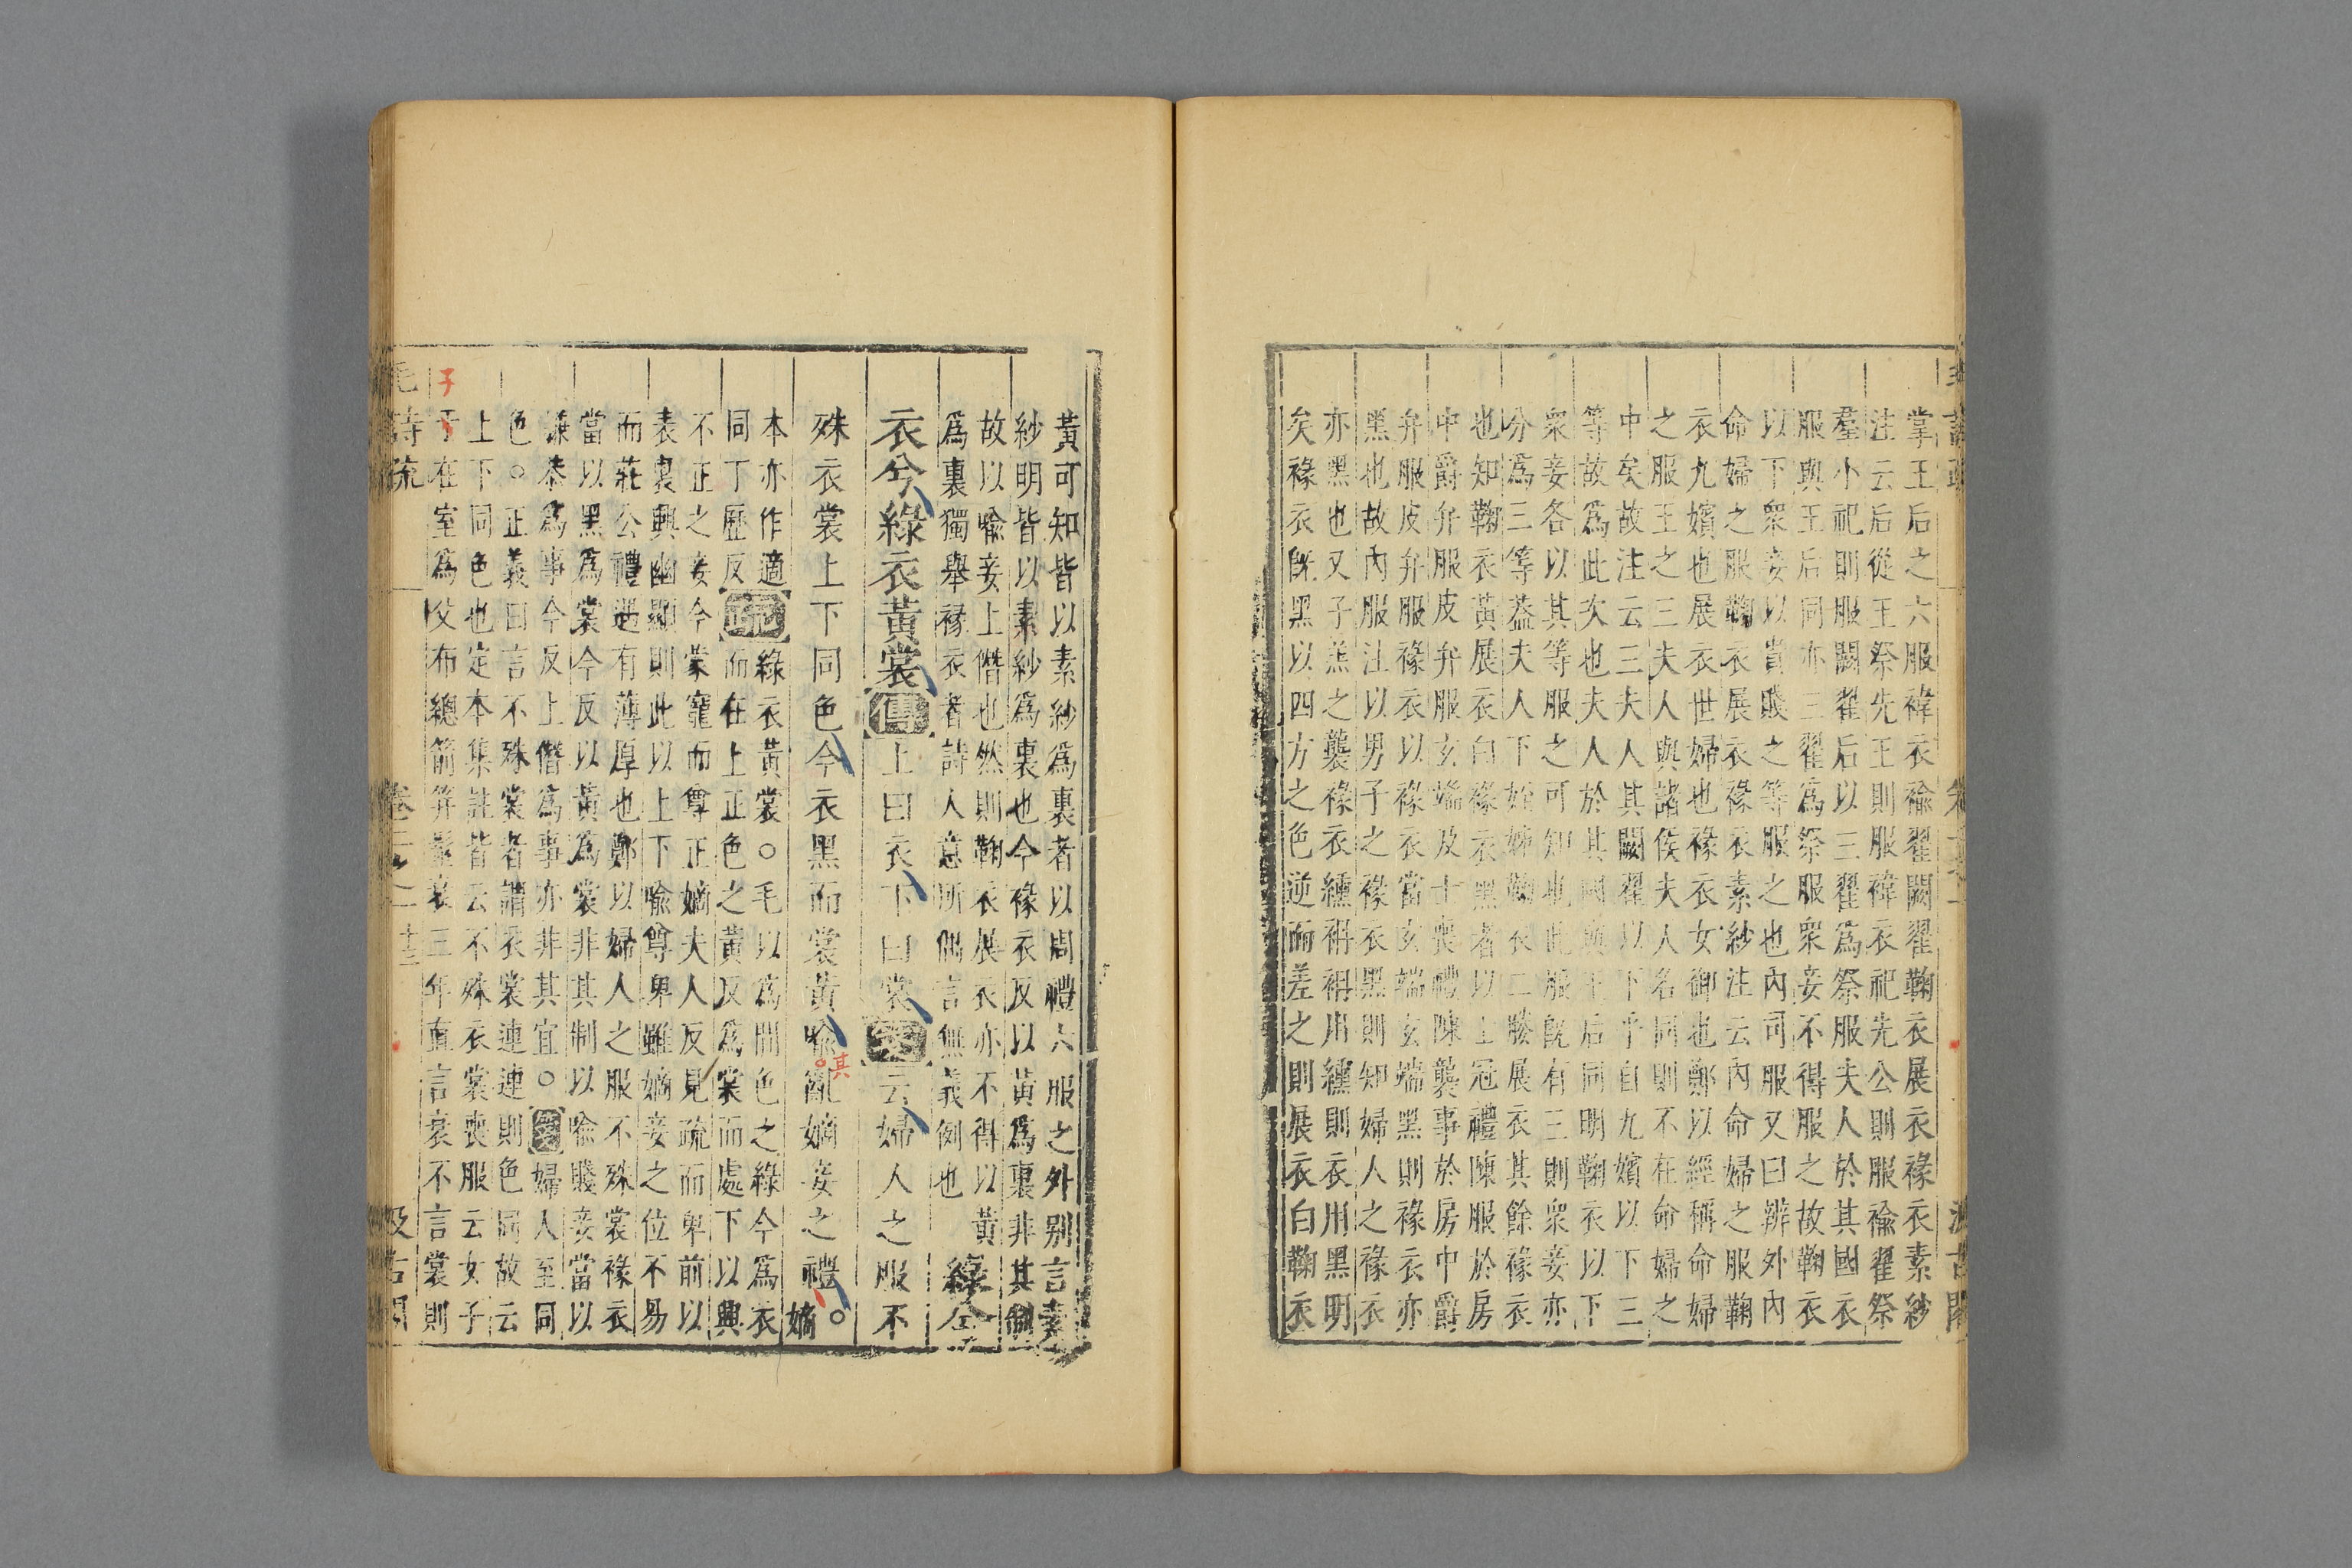 掌王后之六服褘衣褕翟闕翟鞠衣展衣褖衣素紗
注云后從王祭先王則服褘衣祀先公則服褕翟祭
羣小祀則服闕翟后以三翟為祭服夫人於其國衣
服與王后同亦三翟為祭服眾妾不得服之故鞠衣
以下眾妾以貴賤之等服之也內司服又曰辨外內
命婦之服鞠衣展衣褖衣素紗注云內命婦之服鞠
衣九嬪也展衣世婦也褖衣女御也鄭以經稱命婦
之服王之三夫人與諸侯夫人名同則不在命婦之
中矣故注云三夫人其闕翟以下乎自九嬪以下三
等故為此次也夫人於其國與王后同明鞠衣以下
眾妾各以其等服之可知也此服既有三則眾妾亦
分為三等葢夫人下姪娣鞠衣二媵展衣其餘褖衣
也知鞠衣黃展衣白褖衣黑者以士冠禮陳服於房
中爵弁服皮弁服玄端及士喪禮陳襲事於房中爵
弁服皮弁服褖衣以褖衣當玄端玄端黑則褖衣亦
黑也故內服注以男子之褖衣黑則知婦人之褖衣
亦黑也又子羔之襲褖衣纁袡袡用纁則衣用黑明
矣褖衣既黑以四方之色逆而差之則展衣白鞠衣
黃可知皆以素紗為裏者以周禮六服之外别言素
紗明皆以素紗為裏也今褖衣反以黃為裏非其制
故以喻妾上僭也然則鞠衣展衣亦不得以黃
為裏獨舉褖衣者詩人意所偶言無義例也 綠兮
衣兮綠衣黃裳傳上曰衣下曰裳箋云婦人之服不
殊衣裳上下同色今衣黑而裳黃喻其亂嫡妾之禮○嫡
本亦作適
同丁歷反疏綠衣黃裳○毛以為間色之綠今為衣
而在上正色之黃反為裳而處下以興
不正之妾今蒙寵而尊正嫡夫人反見疏而卑前以
表裏興幽顯則此以上下喻尊卑雖嫡妾之位不易
而莊公禮遇有薄厚也鄭以婦人之服不殊裳褖衣
當以黑為裳今反以黃為裳非其制以喻賤妾當以
謙恭為事今反上僭為事亦非其宜○箋婦人至同
色○正義曰言不殊裳者謂衣裳連連則色同故云
上下同色也定本集註皆云不殊衣裳喪服云女子
子在室為父布總箭笄髽衰三年直言衰不言裳則
毛詩疏 卷二之一 十三 汲古閣